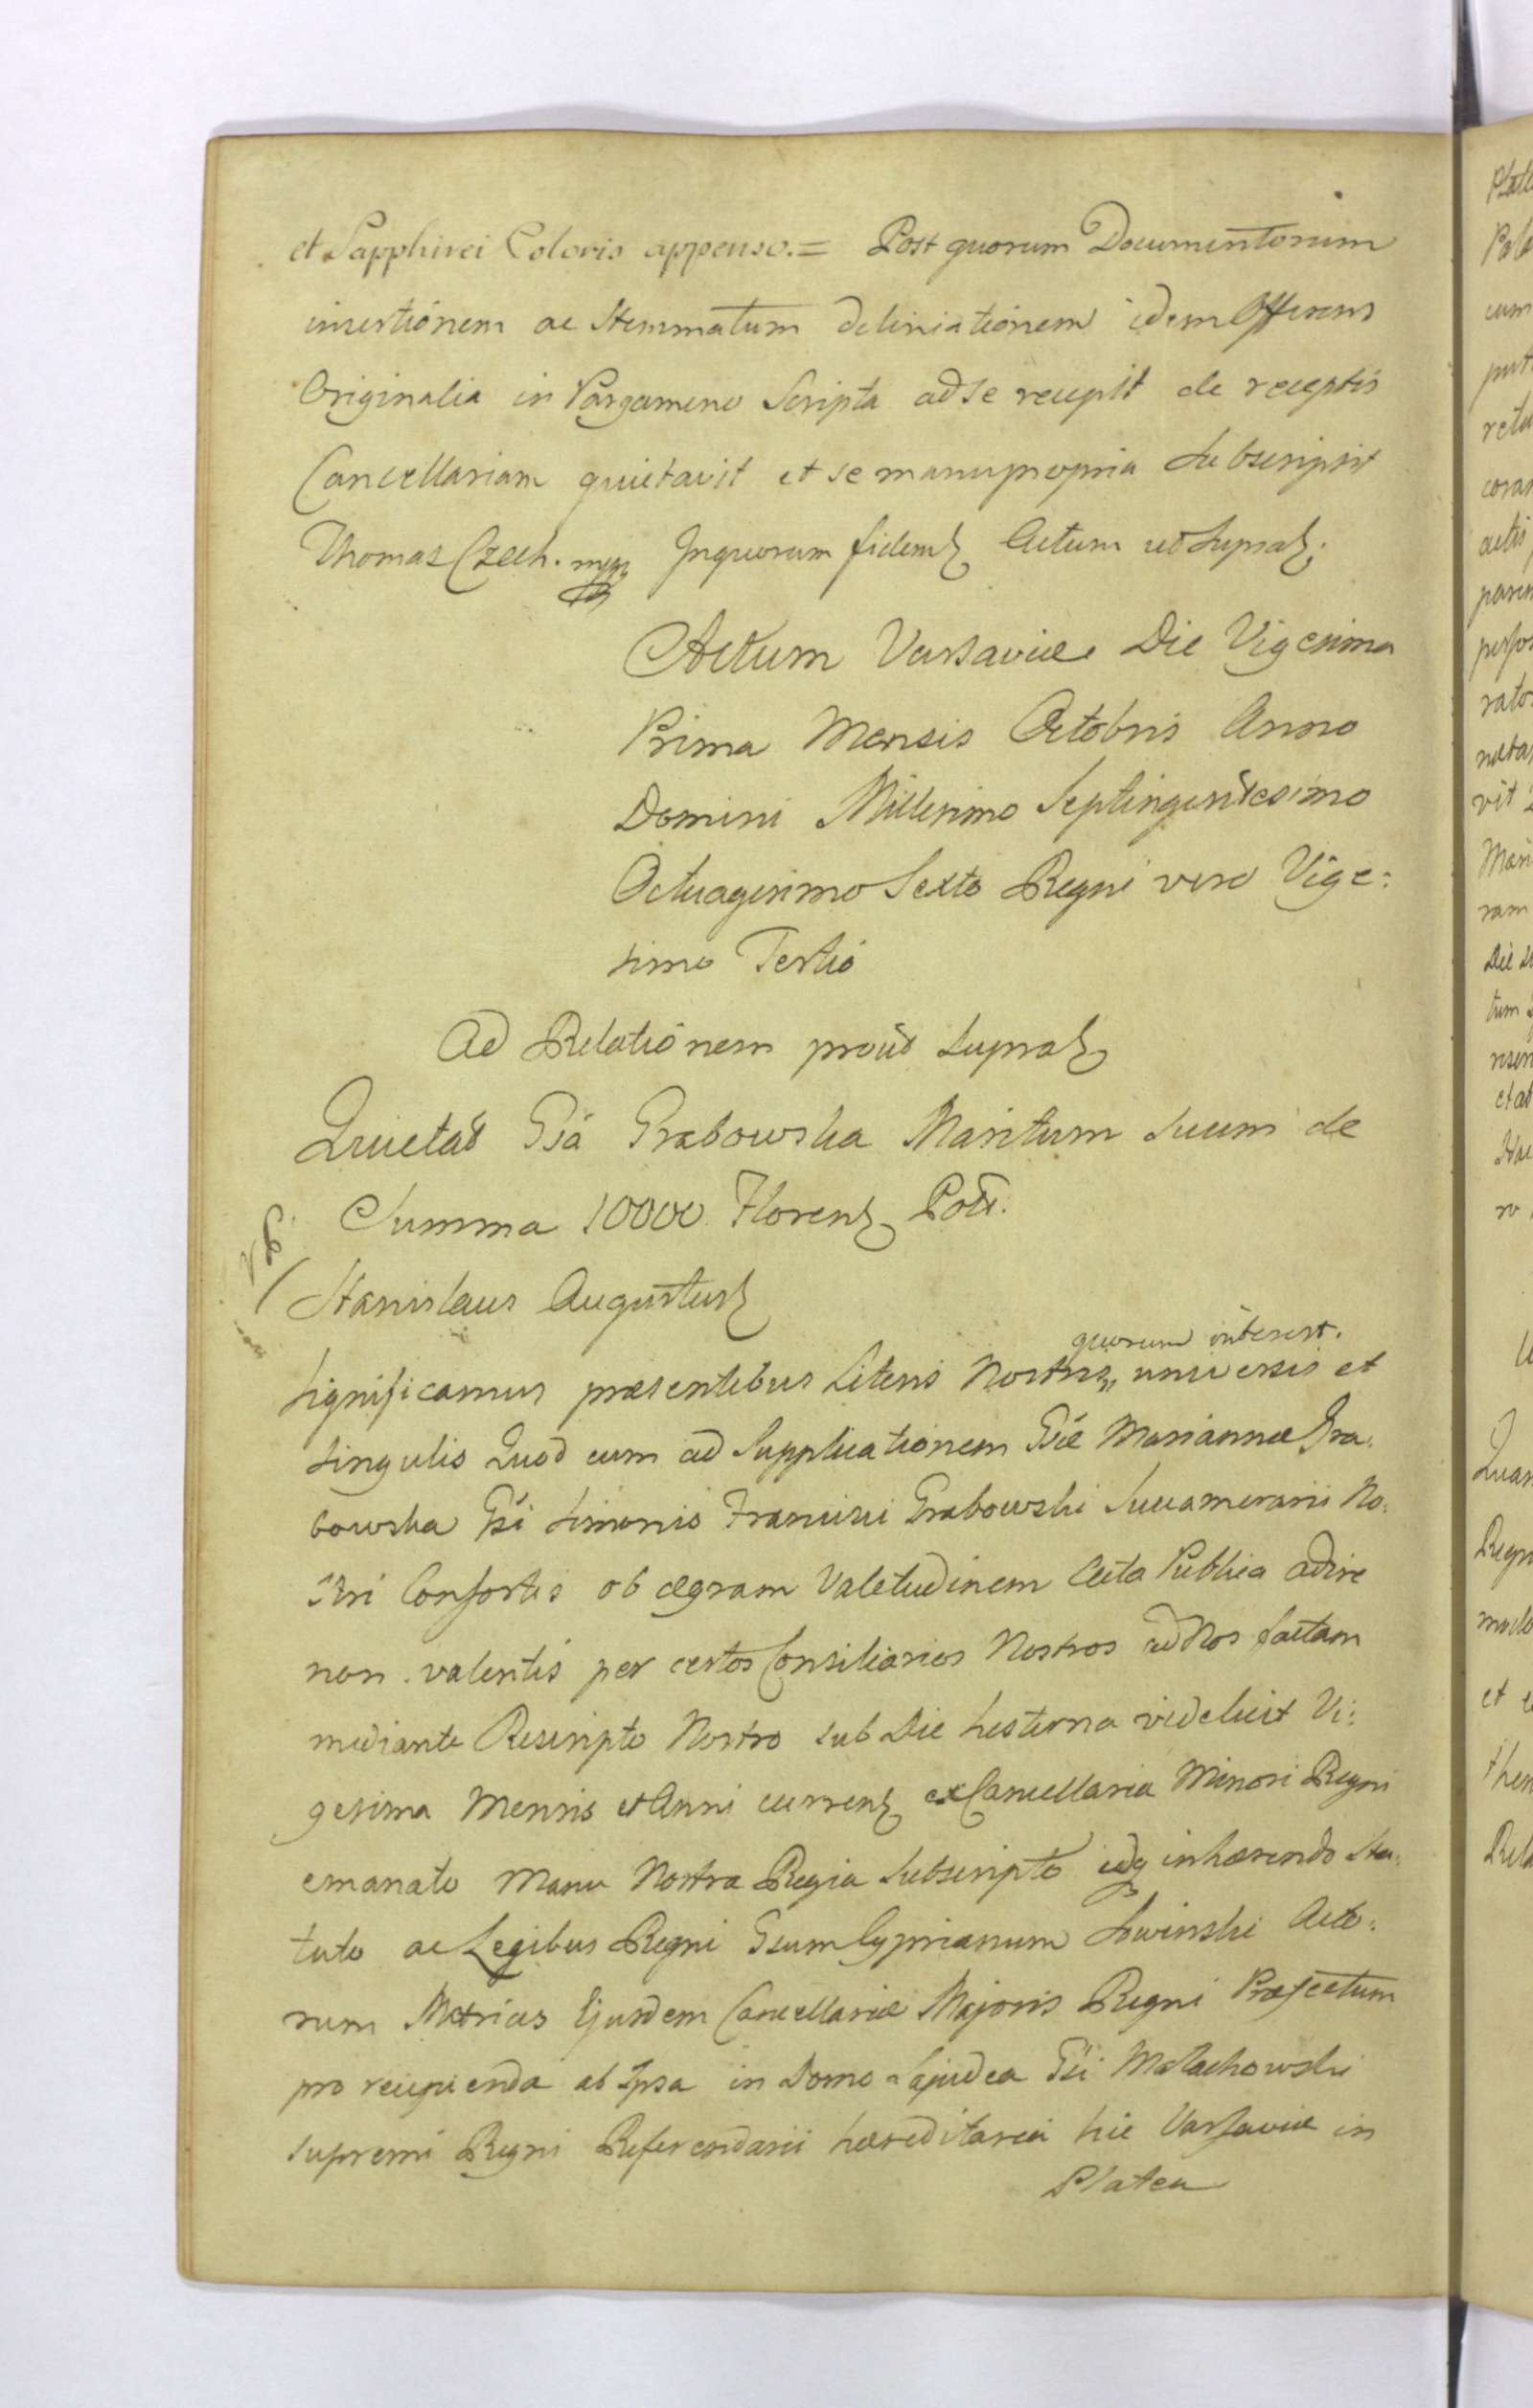 et Sapphirei Coloris appenso.= Post quorum Documentorum
insertionem ac Stemmatum deliniationem idem Offerens
Originalia in Pargameno Scripta ad se recepit de receptis
Cancellariam quietavit et se manupropria Subscripsit
Thomas Czech. mpp In quorum fidem Actum ut Supra
Actum Varsaviæ Die Vigesima
Prima Mensis Octobris Anno
Domini Millesimo Septingentesimo
Octuagesimo Sexto Regni vero Vige:
simo Tertio
Ad Relationem prout Supra
Quietat Gsa Grabowska Maritum Suum de
Summa 10000 Floren Poll.
Stanislaus Augustus
quorum interest.
Significamus præsentibus Literis Nostris,, universis et
Singulis Quod cum ad Supplicationem Gsæ Mariannæ Gra:
bowska Gsi Simonis Francisci Grabowski Succamerarii No:
stri Consortis ob ægram Valetudinem Acta Publica adire
non valentis per certos Consiliarios Nostros ad Nos factam
mediante Rescripto Nostro sub Die hesterna videlicet Vi:
gesima Mensis et Anni curren ex Cancellaria Minori Regni
emanato Manu Nostra Regia Subscripto eidq inhærendo Sta:
tuto ac Legibus Regni Gsum Cyprianum Swinski Acto:
rum Metrices Ejusdem Cancellariæ Majoris Regni Præfectum
pro recipienda ab Ipsa in Domo Lapidea Gsi Małachowski
Supremi Regni Referendarii hæreditaria hic Varsaviæ in
Platea